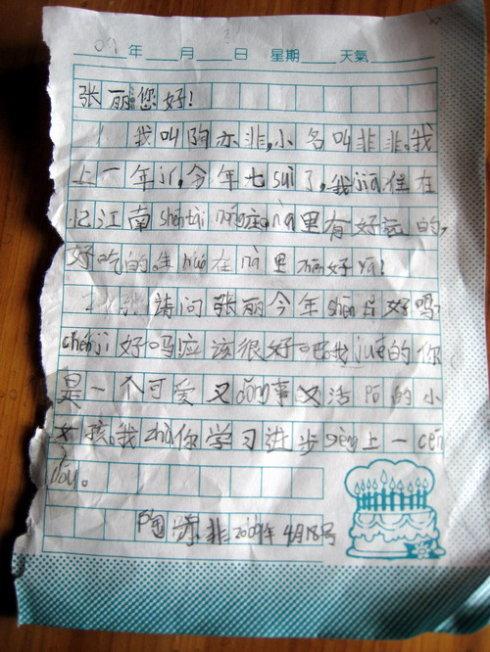 09年 月 日 星期 天氣
张丽您好!
我叫陶亦非,小名叫非非。我
上一年jí,今年七suì了,我jiā住在
江南shēntài nà里有好玩的,
好吃的。生huó在nà里 好yā!
请问张丽今年shēn 好吗?
chénjì好吗应该很好吧我jué的你
是一个可爱又dǒng事又活 的小
女孩,我zhù你学习进步gèng上一cén
lóu。
陶亦非2009年4月18号